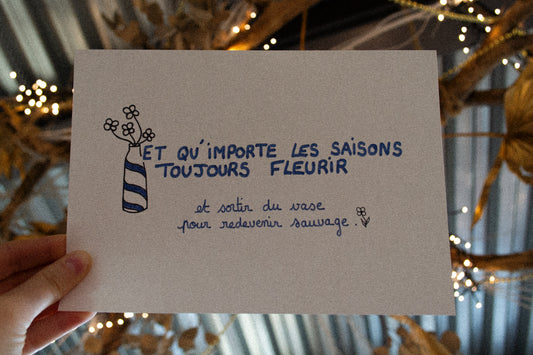 ET QU'IMPORTE LES SAISONS
TOUJOURS FLEURIR
et sortir du vase
pour redevenir sauvage.